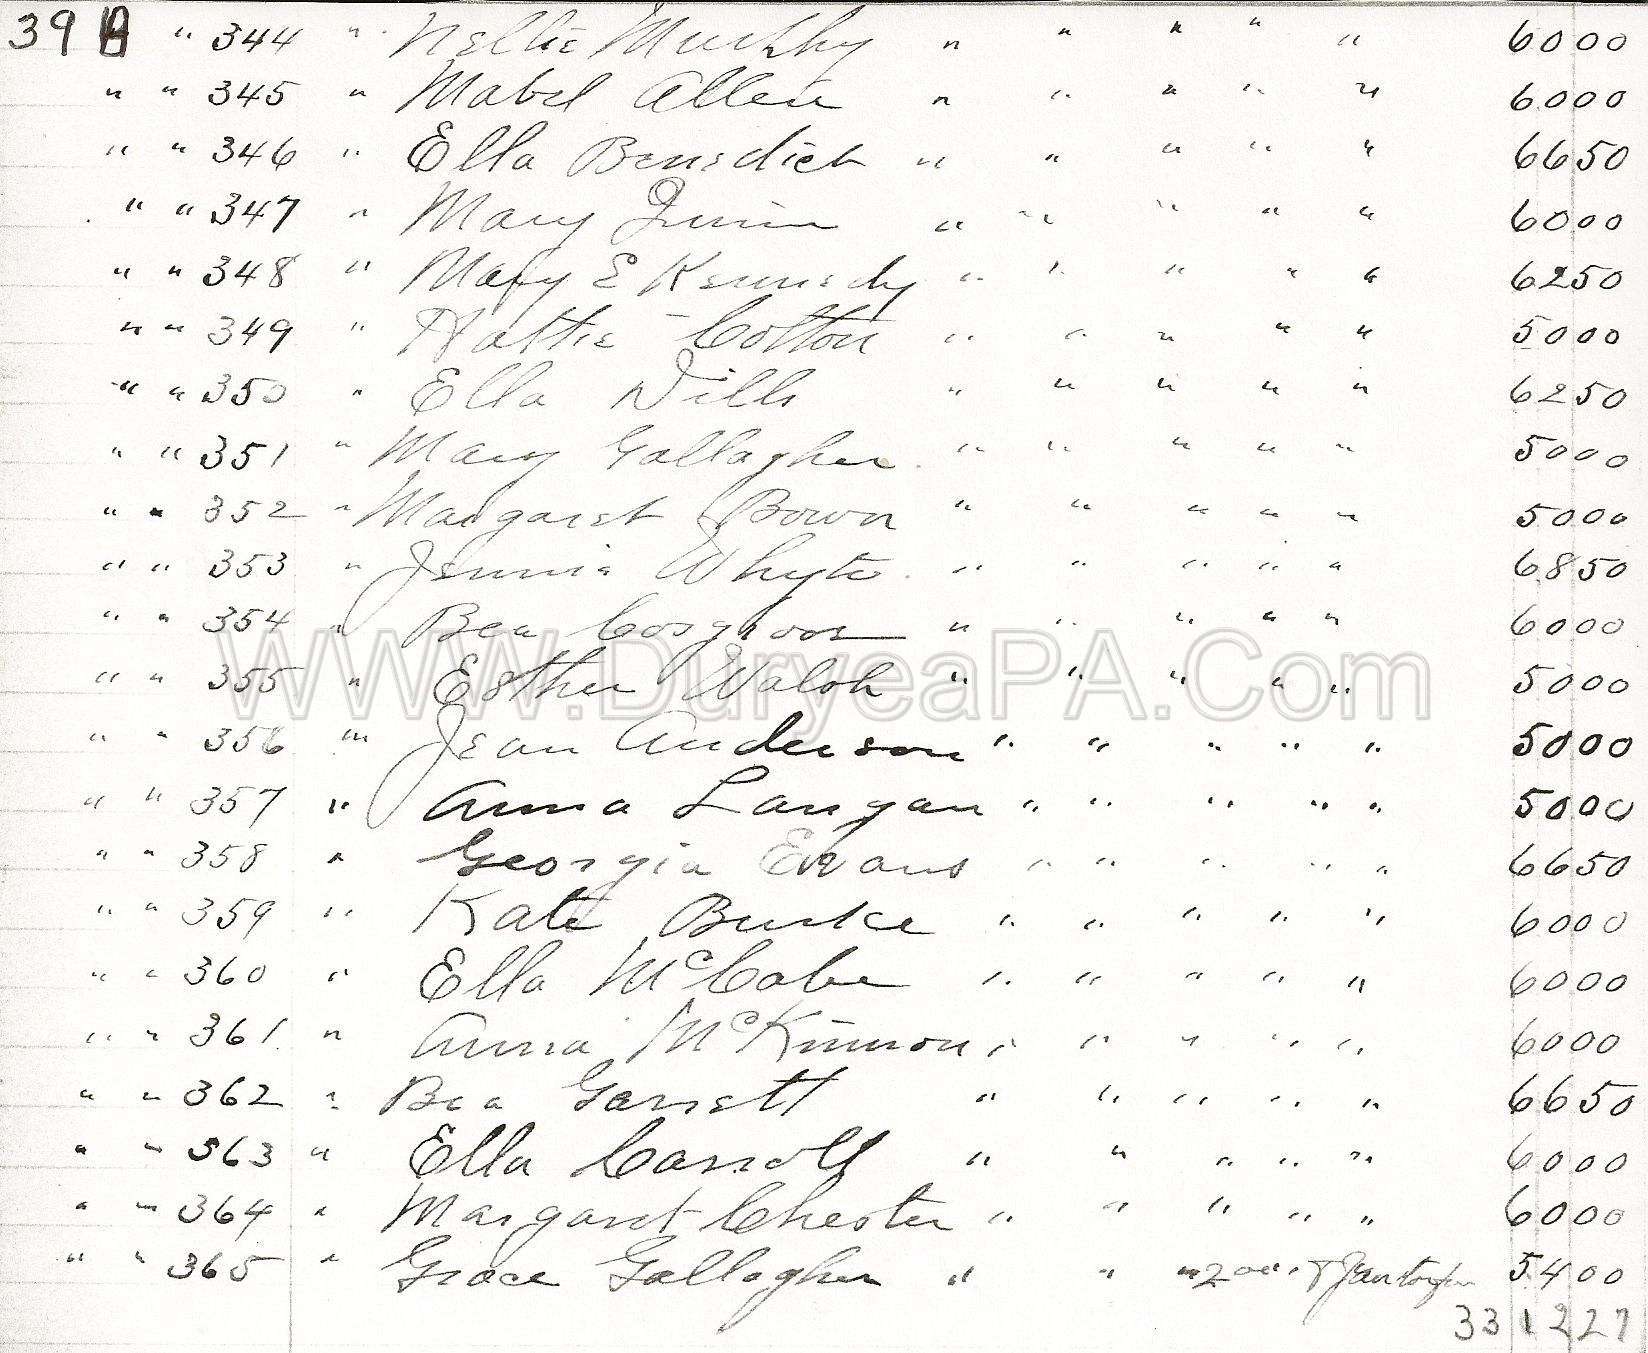 39 " 344 " Nellie Murphy " " " " " 6000
" " 345 " Mabel Allen " " " " " 6000
" " 346 " Ella Benedict " " " " " 6650
" " 347 " Mary Quinn " " " " " 6000
" " 348 " Mary E Kennedy " " " " " 6250
" " 349 " Hattie Cotton " " " " " 5000
" " 350 " Ella Wills " " " " " 6250
" " 351 " Mary Gallagher " " " " " 5000
" " 352 " Margaret Bown " " " " " 5000
" " 353 " Jennie Whyte " " " " " 6850
" " 354 " Bea Cosgrove " " " " " 6000
WWW.DuryeaPA.Com
" " 355 " Esther Walsh " " " " " 5000
" " 356 " Jean Anderson " " " " " 5000
" " 357 " Anna Langan " " " " " 5000
" " 358 " Georgia Evans " " " " " 6650
" " 359 " Kate Burke " " " " " 6000
" " 360 " Ella McCabe " " " " " 6000
" " 361 " Anna McKinnon " " " " " 6000
" " 362 " Bea Garrett " " " " " 6650
" " 363 " Ella Carroll " " " " " 6000
" " 364 " Margaret Chester " " " " " 6000
" " 365 " Grace Gallagher " " " 5400
331227